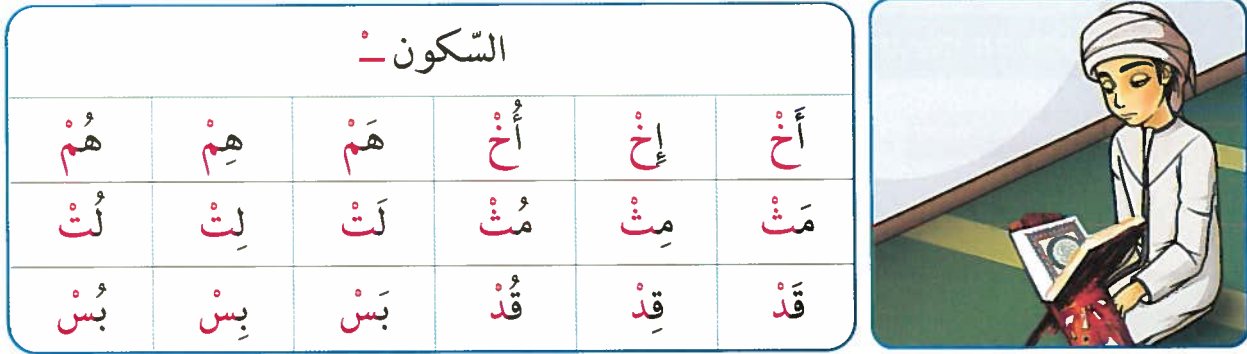 السّكون ـْ
أَخْ إِخْ أُخْ هَمْ هِمْ هُمْ
مَثْ مِثْ مُثْ لَتْ لِتْ لُتْ
قَدْ قِدْ قُدْ بَسْ بِسْ بُسْ